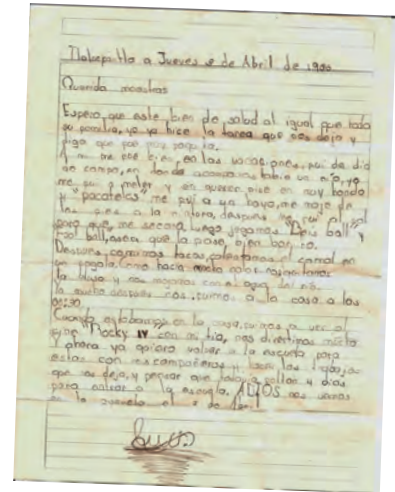 a Jueves de Abril de
Querida maestra:
Espero que este bien de salud al igual que toda
su familia, yo ya hice la tarea que nos dejo y
diga que por muy poquita.
A mi me fue bien en las vacaciones, fui de dia
de campo, en donde acampamos habia un río, yo
me fui a meter y en que me vi muy hondo
y "pacatelas" me fui a ya baya, me moje de
los pies a la despues me fui al sol
para que me secara, luego jugamos "Beis ball" y
foot ball, asea que la pase bien
Despues comimos tacos, calentamos el comal en
un Como hacia mucho calor
la blusa y nos mojamos con el agua del río.
la noche despues nos fuimos a la casa a las
06:30
Cuando estabamos en la casa, fuimos a ver al
cine Rocky IV con mi tia, nos divertimos mucho
Y ahora ya quiero volver a la escuela para
estar con mis compañeras y hacer los trabajos
que nos deja, y pensar que todavia faltan 4 dias
para entrar a la escuela. ADIOS nos vemos
en la escuela el de Abril